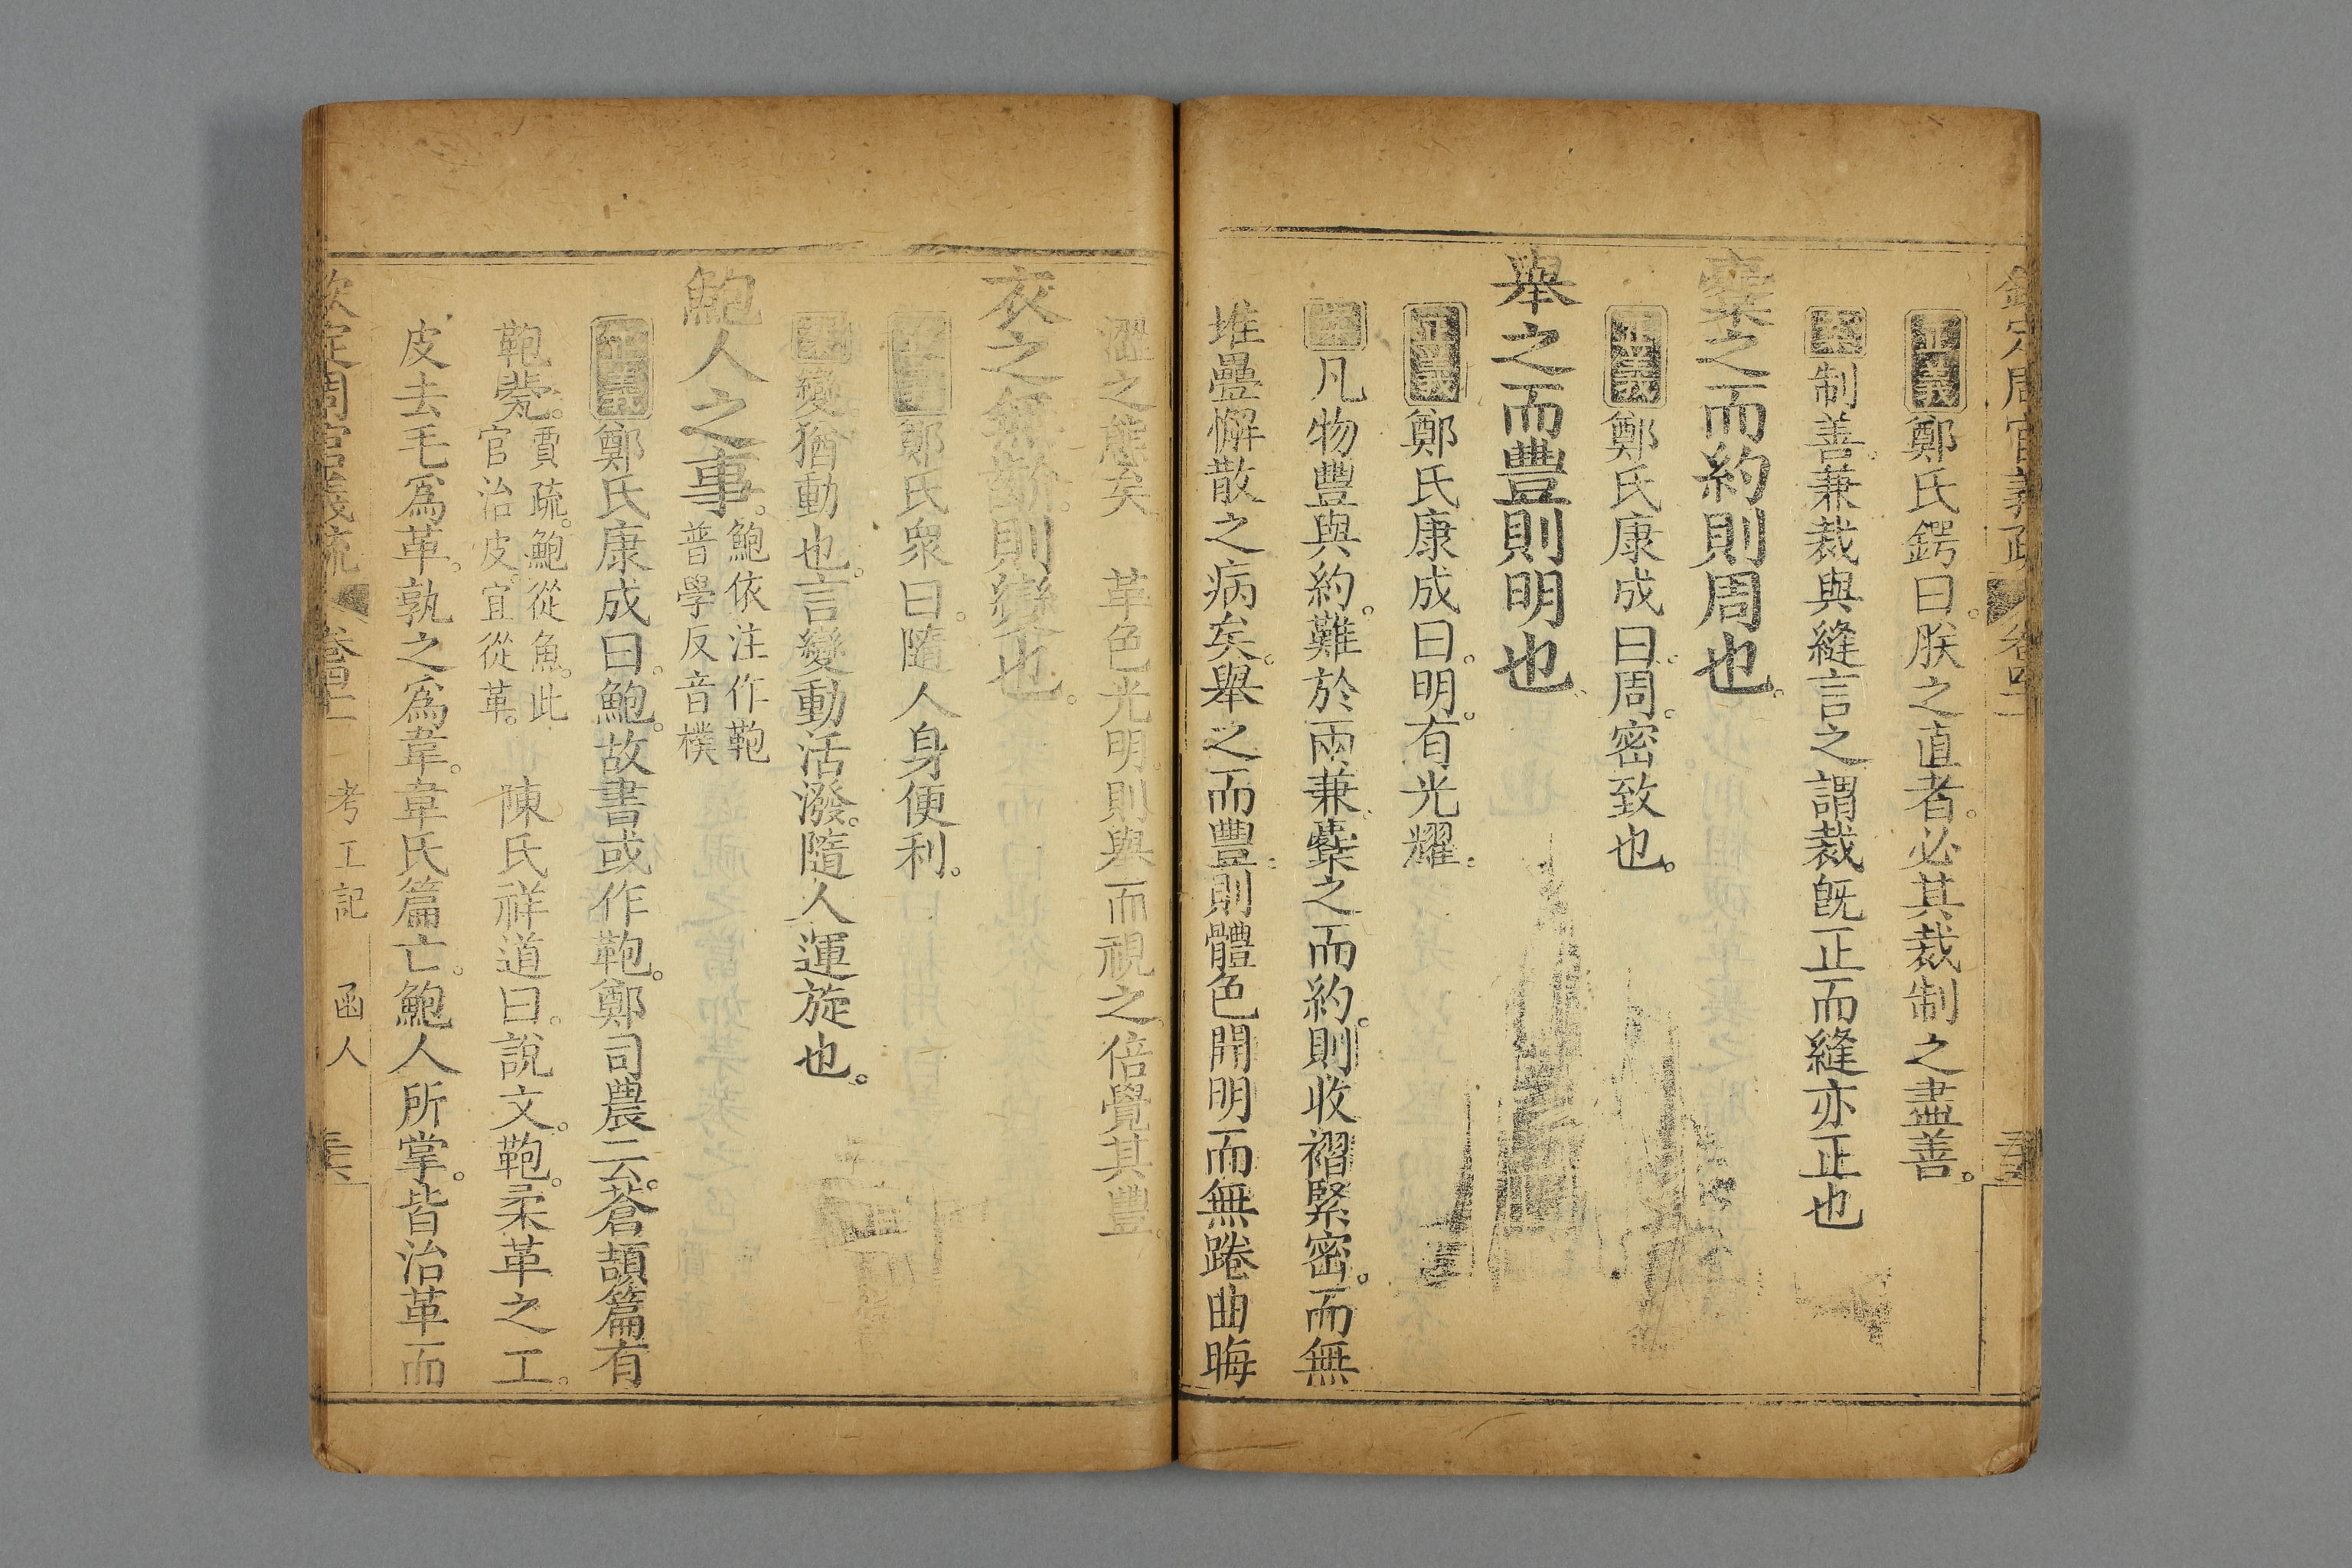 欽定周官義疏 卷四十
正義鄭氏鍔曰。朕之直者。必其裁制之盡善。
案制善。兼裁與縫言之。謂裁旣正而縫亦正也
櫜之而約則周也。
正義鄭氏康成曰。周。密致也。
舉之而豐則明也。
正義鄭氏康成曰。明。有光耀。
案凡物豐與約。難於兩兼。櫜之而約。則收褶緊密。而無
堆疊懈散之病矣。舉之而豐。則體色開明而無踡曲晦
澀之態矣。革色光明。則舉而視之。倍覺其豐。
衣之無齘。則變也。
正義鄭氏衆曰。隨人身便利。
案變。猶動也。言變動活潑。隨人運旋也。
鮑人之事。鮑依注作鞄
普學反音樸
正義鄭氏康成曰。鮑。故書或作鞄。鄭司農云。蒼頡篇有
鞄㼱。賈疏。鮑從魚。此
官治皮。宜從革。
陳氏祥道曰。說文。鞄。柔革之工。
皮去毛爲革。孰之爲韋。韋氏篇亡。鮑人所掌。皆治革而
欽定周官義疏 卷四十 考工記 函人